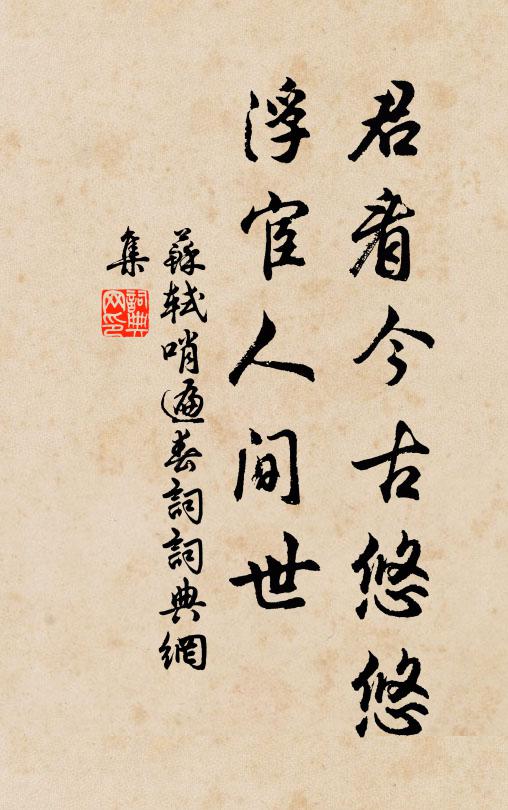 君看今古悠悠
浮宦人间世
蘇軾哨遍春詞詞典網
集
詞典
网印